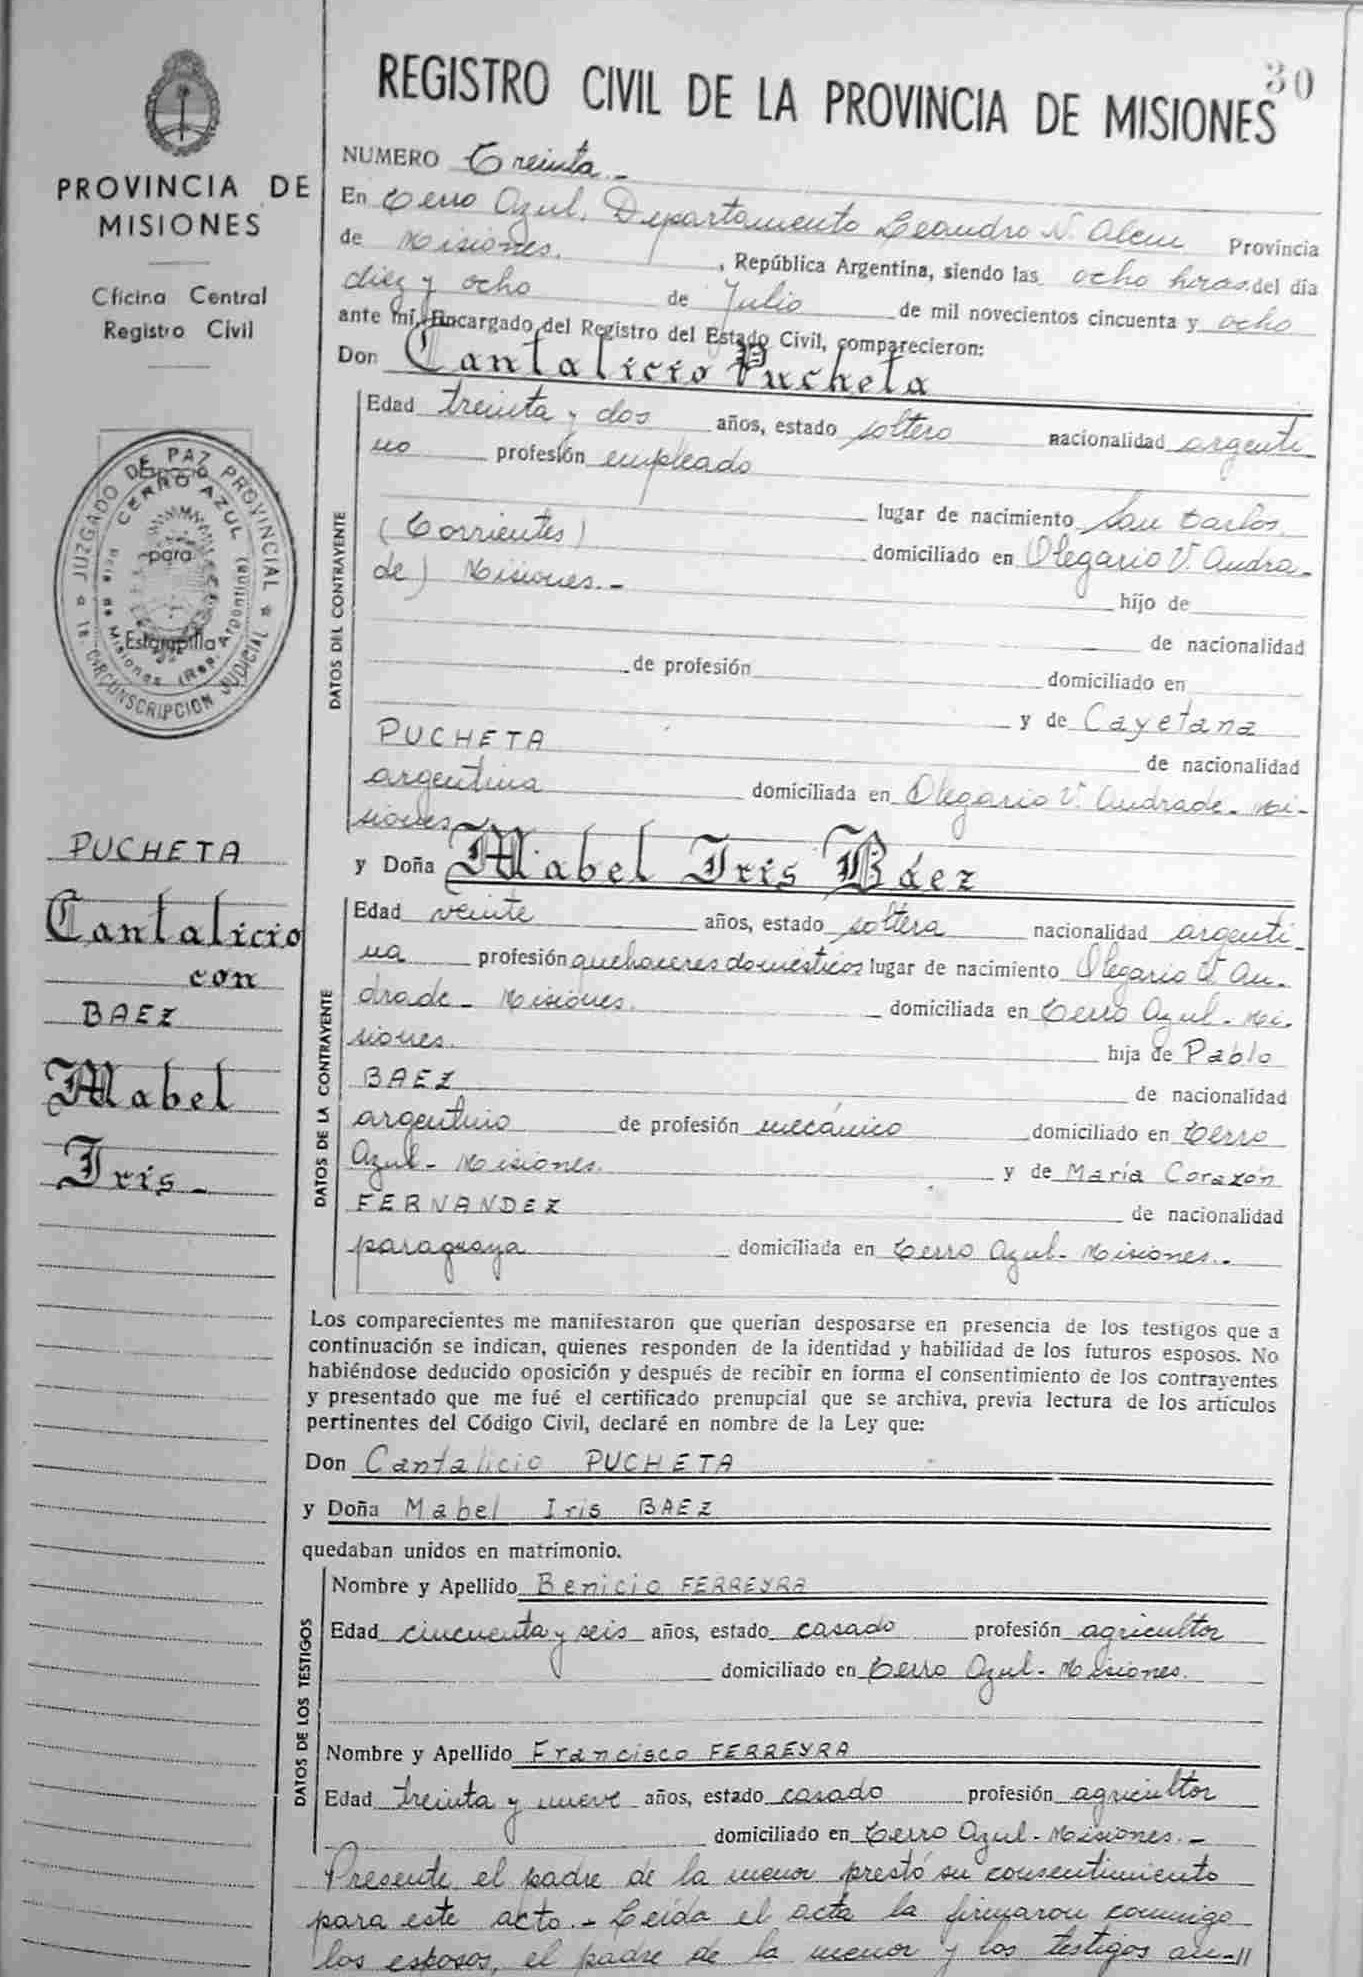 30
REGISTRO CIVIL DE LA PROVINCIA DE MISIONES
PROVINCIA DE
MISIONES
Oficina Central
Registro Civil
JUZGADO DE PAZ PROVINCIAL
CERRO AZUL
Espacio
para
Estampilla
1a. CIRCUNSCRIPCION JUDICIAL
PUCHETA
Cantalicio
con
BAEZ
Mabel
Iris-
NUMERO Treinta.-
En Cerro Azul, Departamento Leandro N. Alem Provincia
de Misiones. , República Argentina, siendo las ocho horas del día
diez y ocho de Julio de mil novecientos cincuenta y ocho
ante mí, Encargado del Registro del Estado Civil, comparecieron:
Don Cantalicio Pucheta
DATOS DEL CONTRAYENTE
Edad treinta y dos años, estado soltero nacionalidad argenti
no profesión empleado
lugar de nacimiento San Carlos,
(Corrientes) domiciliado en Olegario V. Andra-
de) Misiones.- hijo de
de nacionalidad
de profesión domiciliado en
y de Cayetana
PUCHETA de nacionalidad
argentina domiciliada en Olegario V. Andrade- Mi-
siones
y Doña Mabel Iris Báez
DATOS DE LA CONTRAYENTE
Edad veinte años, estado soltera nacionalidad argenti-
na profesión quehaceres domésticos lugar de nacimiento Olegario V An-
drade- Misiones. domiciliada en Cerro Azul- Mi-
siones. hija de Pablo
BAEZ de nacionalidad
argentino de profesión mecánico domiciliado en Cerro
Azul- Misiones. y de María Corazón
FERNANDEZ de nacionalidad
paraguaya domiciliada en Cerro Azul- Misiones.-
Los comparecientes me manifestaron que querían desposarse en presencia de los testigos que a
continuación se indican, quienes responden de la identidad y habilidad de los futuros esposos. No
habiéndose deducido oposición y después de recibir en forma el consentimiento de los contrayentes
y presentado que me fué el certificado prenupcial que se archiva, previa lectura de los artículos
pertinentes del Código Civil, declaré en nombre de la Ley que:
Don Cantalicio PUCHETA
y Doña Mabel Iris BAEZ
quedaban unidos en matrimonio.
DATOS DE LOS TESTIGOS
Nombre y Apellido Benicio FERREYRA
Edad cincuenta y seis años, estado casado profesión agricultor
domiciliado en Cerro Azul- Misiones.
Nombre y Apellido Francisco FERREYRA
Edad treinta y nueve años, estado casado profesión agricultor
domiciliado en Cerro Azul- Misiones.-
Presente el padre de la menor prestó su consentimiento
para este acto.- Leída el acta la firmaron conmigo
los esposos, el padre de la menor y los testigos an-//